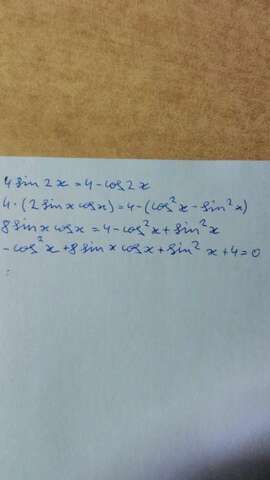 4 sin 2x = 4 - cos 2x
4 · (2 sin x cos x) = 4 - (cos² x - sin² x)
8 sin x cos x = 4 - cos² x + sin² x
- cos² x + 8 sin x cos x + sin² x + 4 = 0
: